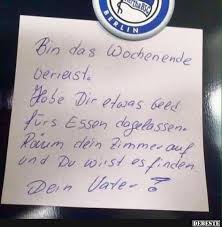 BERLIN
Bin das Wochenende
verreist.
Habe Dir etwas Geld
fürs Essen dagelassen.
Räum dein Zimmer auf
und Du wirst es finden
Dein Vater
DEBESTE